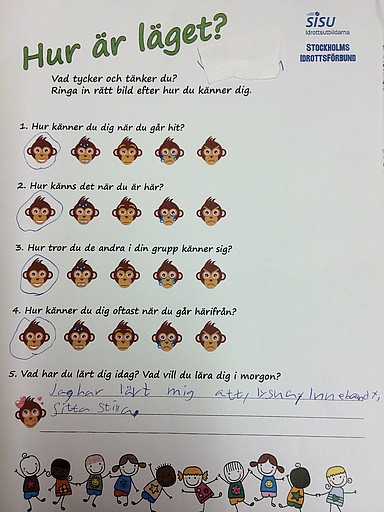 Hur är läget?
SISU
Idrottsutbildarna
STOCKHOLMS
IDROTTSFÖRBUND
Vad tycker och tänker du?
Ringa in rätt bild efter hur du känner dig.
1. Hur känner du dig när du går hit?
2. Hur känns det när du är här?
3. Hur tror du de andra i din grupp känner sig?
4. Hur känner du dig oftast när du går härifrån?
5. Vad har du lärt dig idag? Vad vill du lära dig i morgon?
Jag har lärt mig att,
sitta stilla,